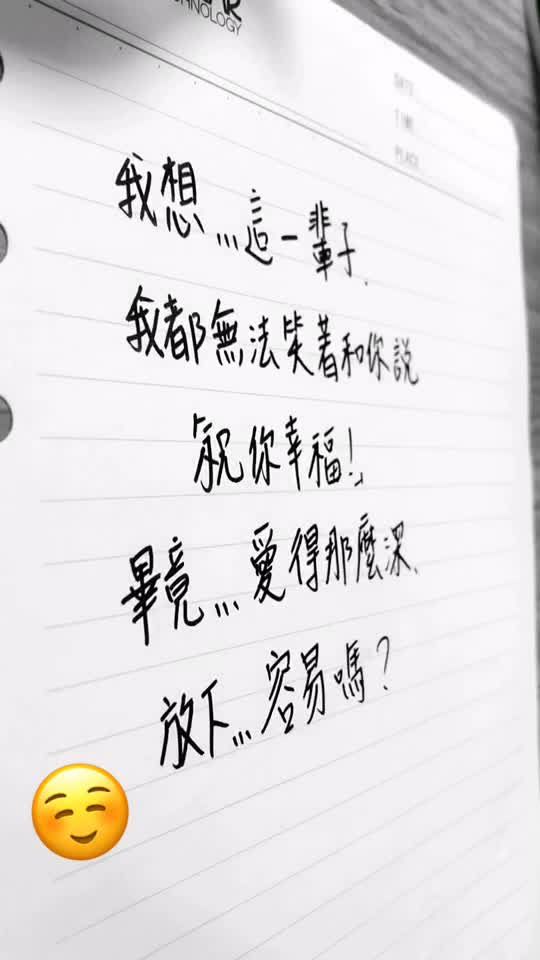 CHNOLOGY
DATE
TIME
PLACE
我想...這一輩子、
我都無法笑著和你說
「祝你幸福!」
畢竟...愛得那麼深、
放下...容易嗎?